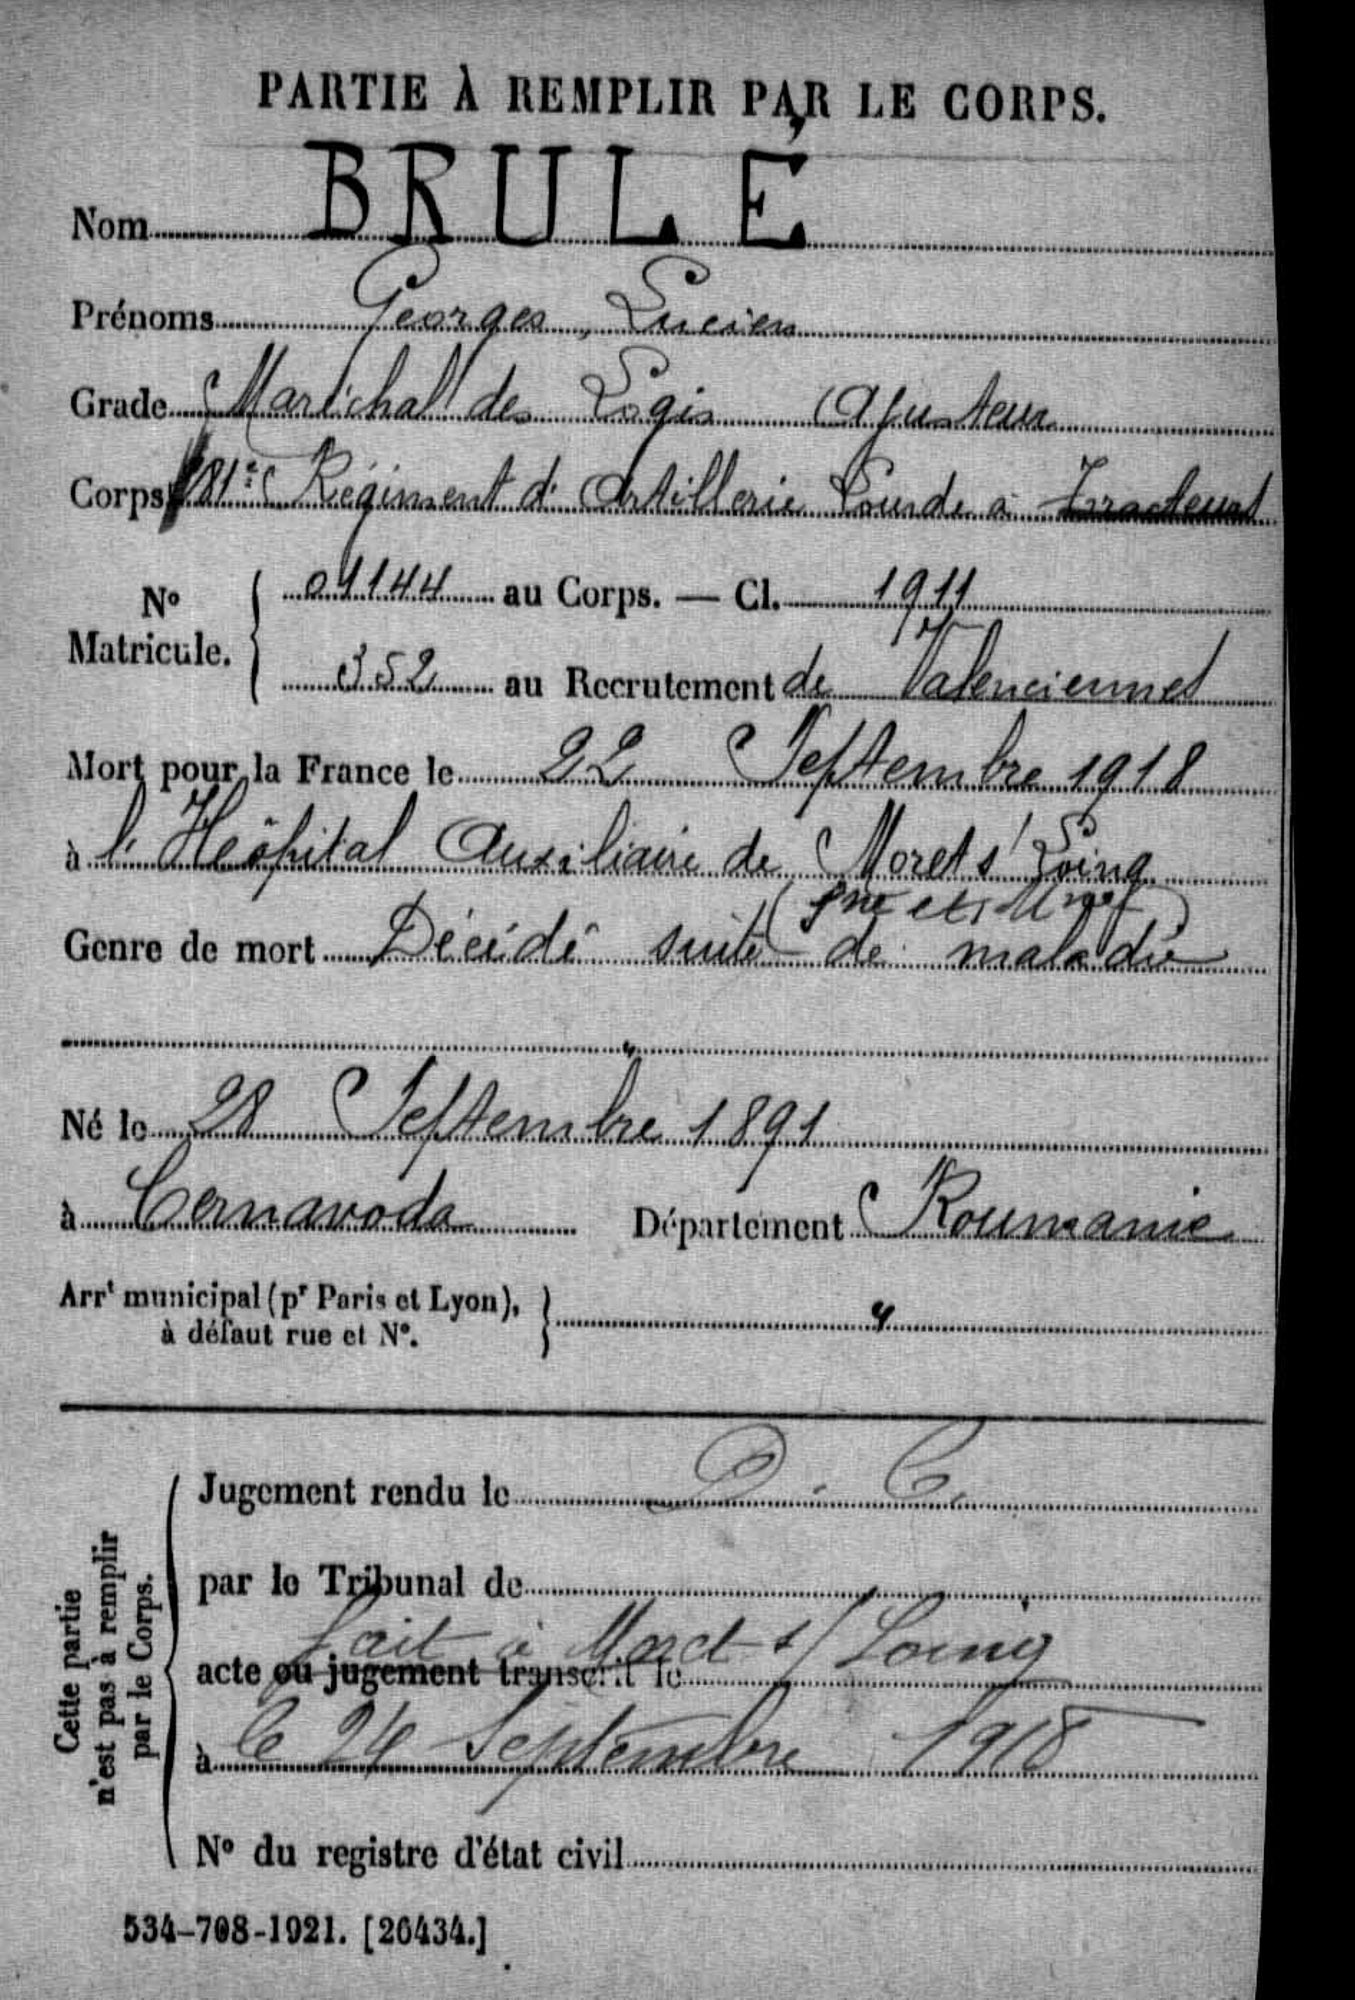 PARTIE À REMPLIR PAR LE CORPS.
Nom BRULÉ
Prénoms Georges, Lucien
Grade Maréchal des Logis Ajusteur
Corps 81e Régiment d'Artillerie Lourde à Tracteurs
No Matricule. 01144 au Corps. — Cl. 1911
352 au Recrutement de Valenciennes
Mort pour la France le 22 Septembre 1918
à l'Hôpital Auxiliaire de Moret s/ Loing
(Sne et Mne)
Genre de mort Décédé suite de maladie
"
Né le 28 Septembre 1891
à Cernavoda Département Roumanie
Arrt municipal (pr Paris et Lyon),
à défaut rue et No. "
Cette partie n'est pas à remplir par le Corps.
Jugement rendu le D. C.
par le Tribunal de
fait à Moret s/ Loing
acte ou jugement transcrit le
à le 24 Septembre 1918
No du registre d'état civil
534-708-1921. [26434.]